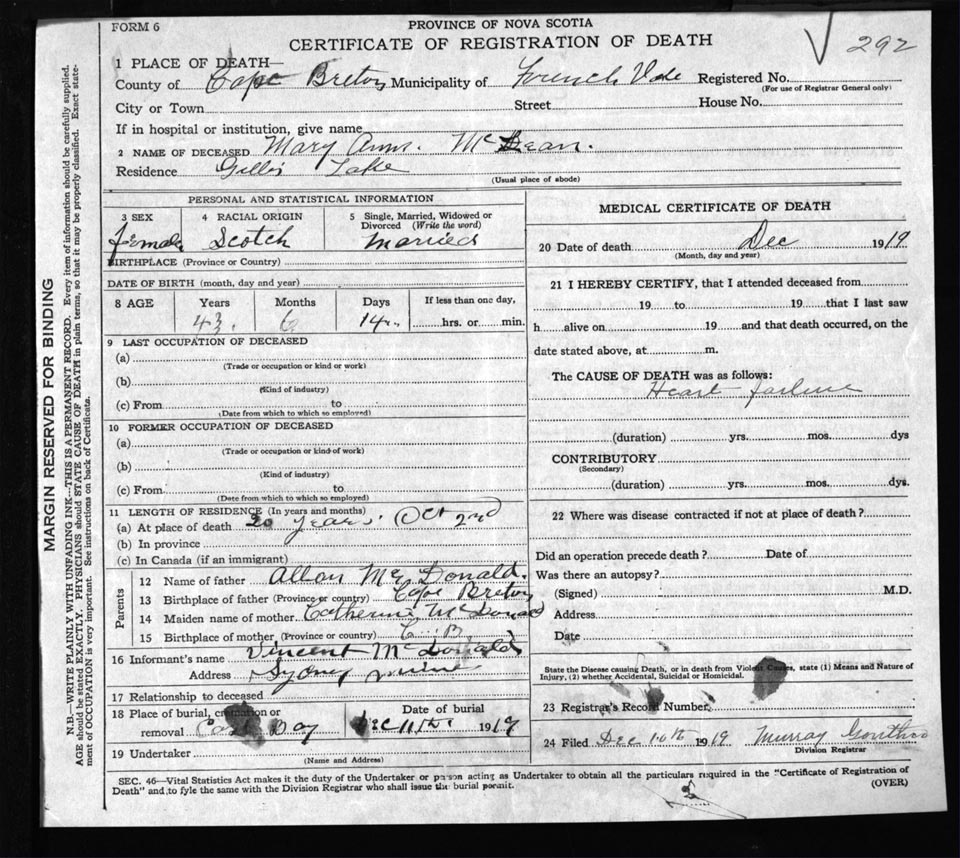 FORM 6
PROVINCE OF NOVA SCOTIA
CERTIFICATE OF REGISTRATION OF DEATH
292
1 PLACE OF DEATH—
County of Cape Breton Municipality of French Vale Registered No.
(For use of Registrar General only)
City or Town Street House No.
If in hospital or institution, give name
2 NAME OF DECEASED Mary Ann. McLean.
Residence Gillis Lake
(Usual place of abode)
PERSONAL AND STATISTICAL INFORMATION
3 SEX 4 RACIAL ORIGIN 5 Single, Married, Widowed or Divorced (Write the word)
female Scotch Married
BIRTHPLACE (Province or Country)
DATE OF BIRTH (month, day and year)
8 AGE Years Months Days If less than one day,
43. 6 14 hrs. or min.
9 LAST OCCUPATION OF DECEASED
(a)
(Trade or occupation or kind or work)
(b)
(Kind of industry)
(c) From to
(Date from which to which so employed)
10 FORMER OCCUPATION OF DECEASED
(a)
(Trade or occupation or kind of work)
(b)
(Kind of industry)
(c) From to
(Date from which to which so employed)
11 LENGTH OF RESIDENCE (In years and months)
(a) At place of death 20 years. Oct 2nd
(b) In province
(c) In Canada (if an immigrant)
Parents
12 Name of father Allan McDonald.
13 Birthplace of father (Province or country) Cape Breton
14 Maiden name of mother Catherine McDonald
15 Birthplace of mother (Province or country) C. B
16 Informant's name Vincent McDonald
Address Sydney mine
17 Relationship to deceased
18 Place of burial, cremation or Date of burial
removal Bay Dec 11th 1919
19 Undertaker
(Name and Address)
MEDICAL CERTIFICATE OF DEATH
20 Date of death Dec 1919
(Month, day and year)
21 I HEREBY CERTIFY, that I attended deceased from
19 to 19 that I last saw
h alive on 19 and that death occurred, on the
date stated above, at m.
The CAUSE OF DEATH was as follows:
Heart failure
(duration) yrs. mos. dys
CONTRIBUTORY
(Secondary)
(duration) yrs. mos. dys.
22 Where was disease contracted if not at place of death?
Did an operation precede death? Date of
Was there an autopsy?
(Signed) M.D.
Address
Date
State the Disease causing Death, or in death from Violent Causes, state (1) Means and Nature of
Injury, (2) whether Accidental, Suicidal or Homicidal.
23 Registrar's Record Number
24 Filed Dec 10th 1919 Murray
Division Registrar
SEC. 46—Vital Statistics Act makes it the duty of the Undertaker or person acting as Undertaker to obtain all the particulars required in the "Certificate of Registration of
Death" and to fyle the same with the Division Registrar who shall issue the burial permit. (OVER)
MARGIN RESERVED FOR BINDING
N.B.—WRITE PLAINLY WITH UNFADING INK—THIS IS A PERMANENT RECORD. Every item of information should be carefully supplied.
AGE should be stated EXACTLY. PHYSICIANS should STATE CAUSE OF DEATH in plain terms, so that it may be properly classified. Exact state-
ment of OCCUPATION is very important. See instructions on back of Certificate.